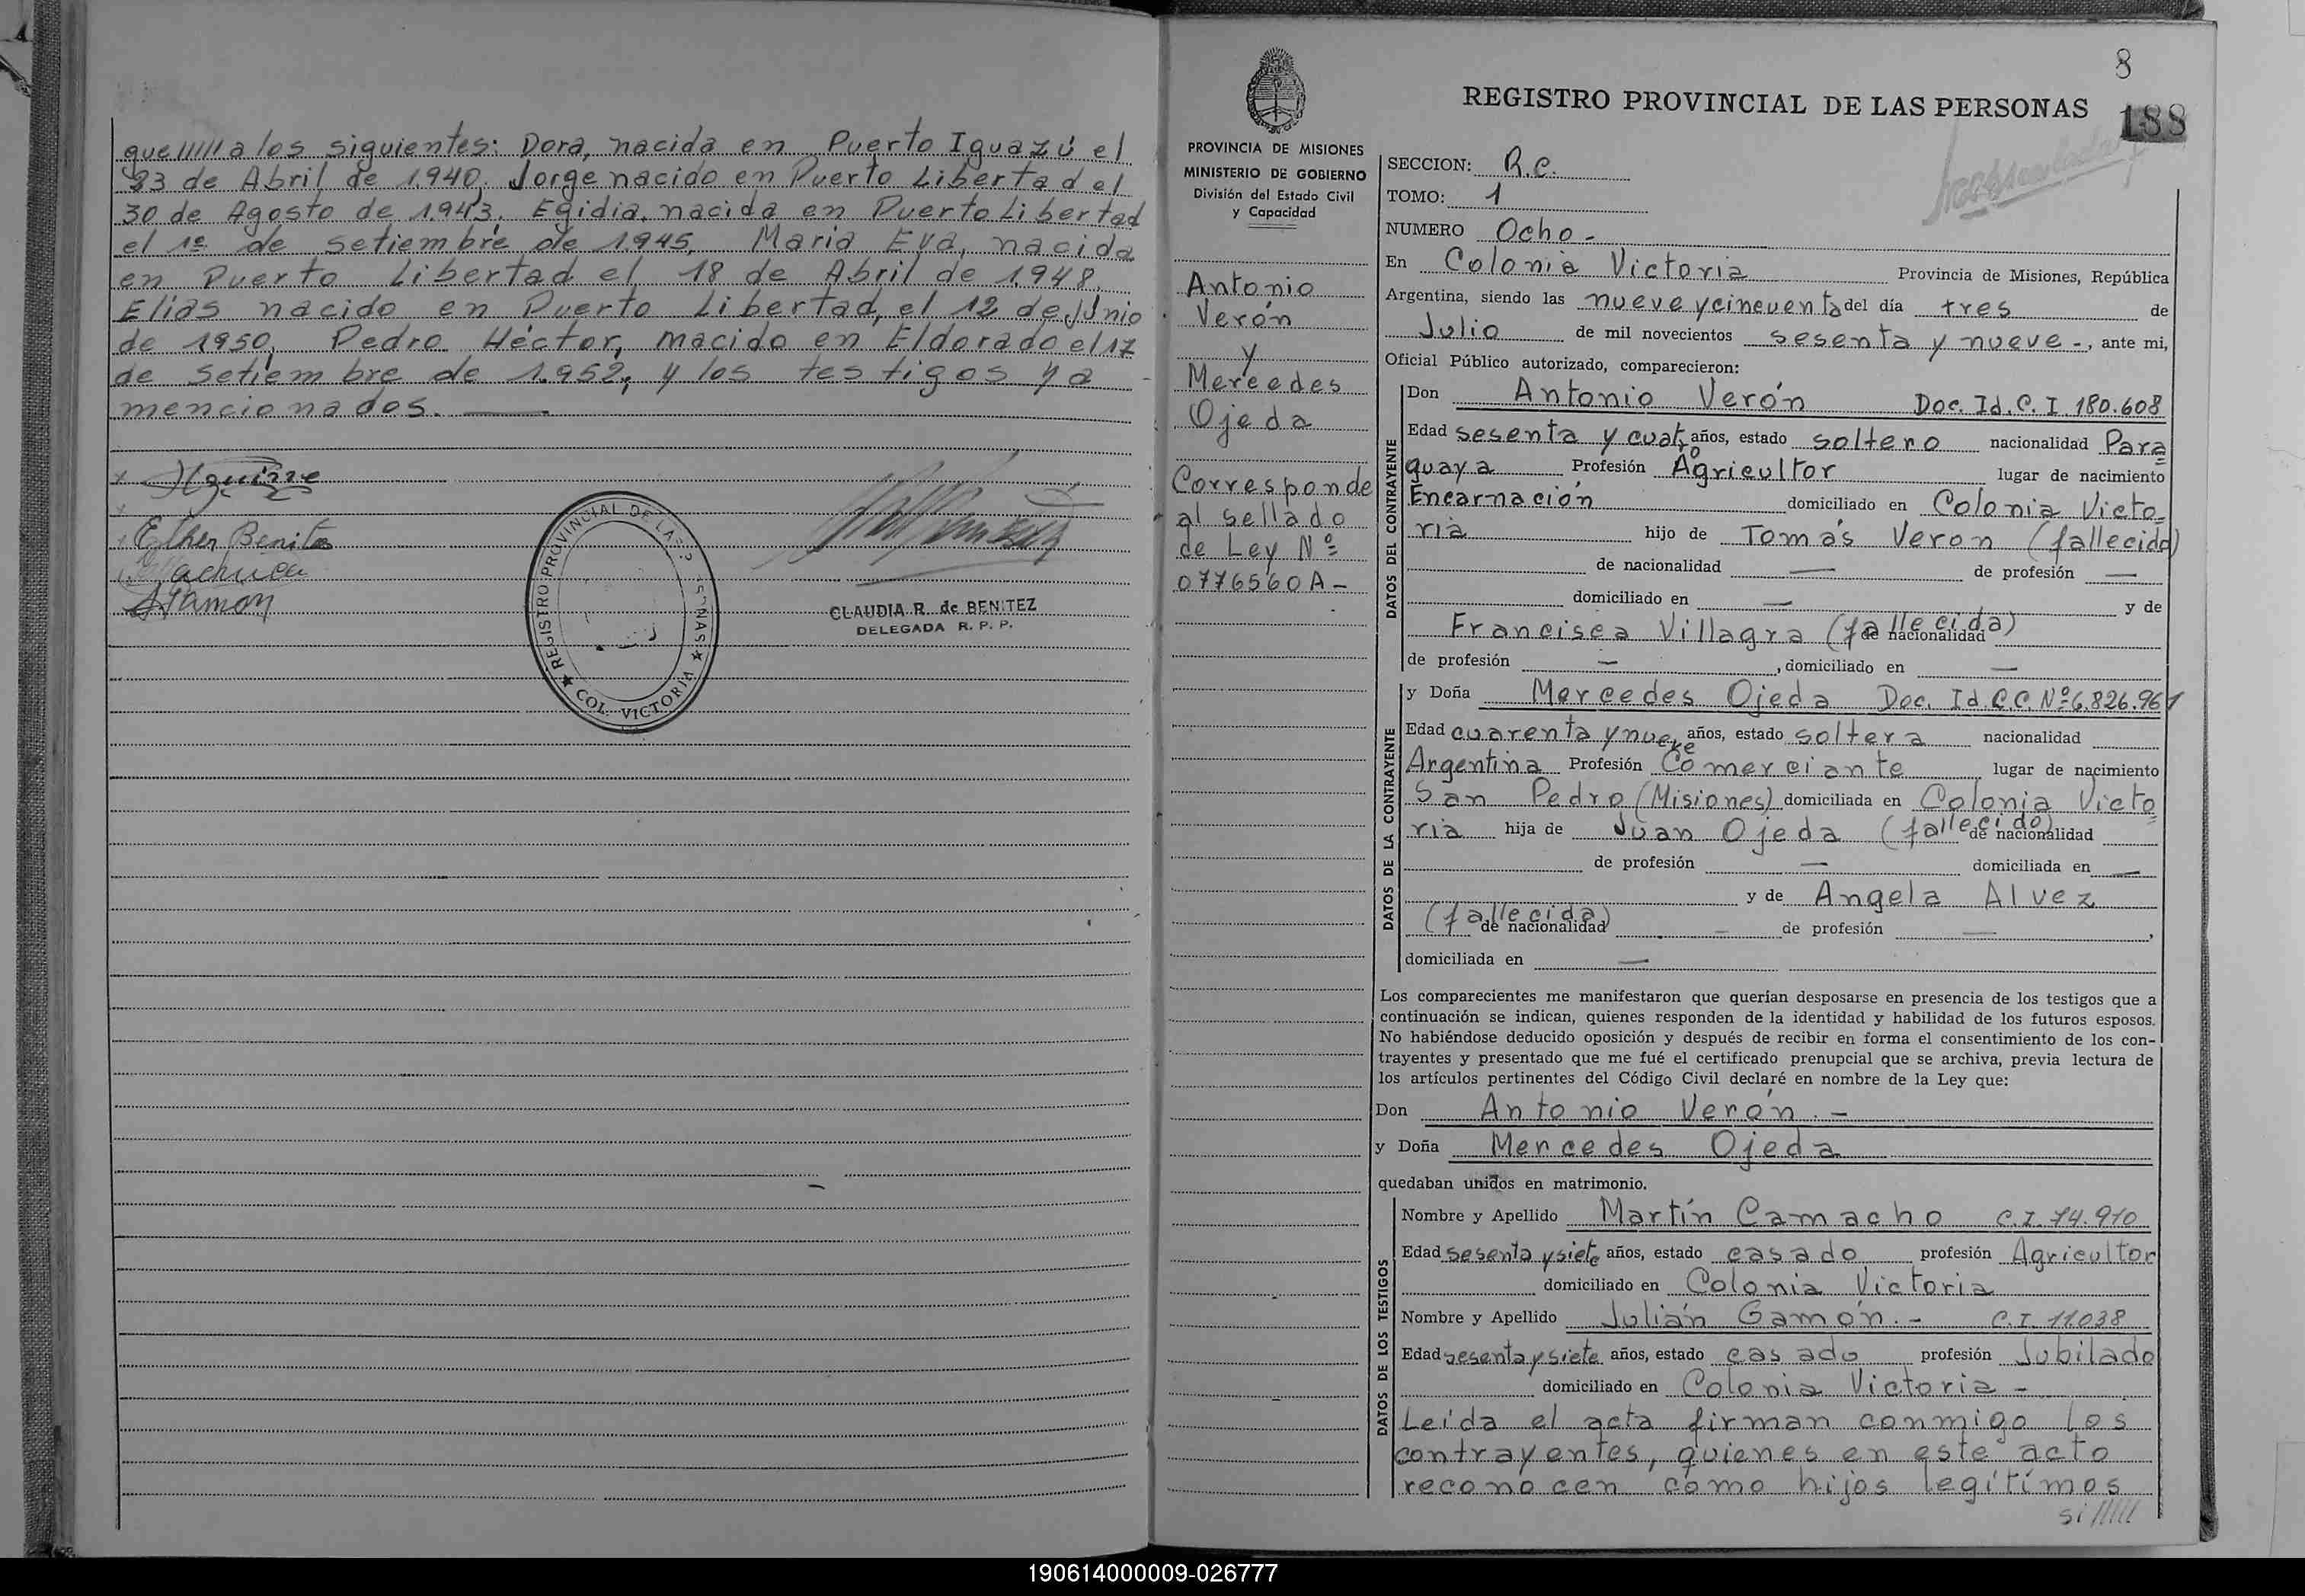 que ///// a los siguientes: Dora, nacida en Puerto Iguazú el
23 de Abril de 1.940, Jorge nacido en Puerto Libertad el
30 de Agosto de 1.943, Egidia, nacida en Puerto Libertad
el 1º de setiembre de 1.945, Maria Eva, nacida
en Puerto Libertad el 18 de Abril de 1.948,
Elias nacido en Puerto Libertad, el 12 de Junio
de 1950, Pedro Héctor, nacido en Eldorado el 17
de setiembre de 1.952, y los testigos ya
mencionados.
Ether Benites
REGISTRO PROVINCIAL DE LAS PERSONAS
★ COL. VICTORIA ★
CLAUDIA R. de BENITEZ
DELEGADA R. P. P.
8
REGISTRO PROVINCIAL DE LAS PERSONAS
188
PROVINCIA DE MISIONES
MINISTERIO DE GOBIERNO
División del Estado Civil
y Capacidad
Antonio
Verón
y
Mercedes
Ojeda
Corresponde
al sellado
de Ley Nº
0776560A-
SECCION: R.C.
TOMO: 1
NUMERO Ocho-
En Colonia Victoria Provincia de Misiones, República
Argentina, siendo las nueve y cincuenta del día tres de
Julio de mil novecientos sesenta y nueve-, ante mi,
Oficial Público autorizado, comparecieron:
DATOS DEL CONTRAYENTE
Don Antonio Verón Doc. Id. C. I. 180.608
Edad sesenta y cuatro años, estado soltero nacionalidad Para=
guaya Profesión Agricultor lugar de nacimiento
Encarnación domiciliado en Colonia Victo=
ria hijo de Tomás Veron (fallecido)
de nacionalidad — de profesión —
domiciliado en — y de
Francisca Villagra (fallecida) de nacionalidad
de profesión —, domiciliado en —
DATOS DE LA CONTRAYENTE
y Doña Mercedes Ojeda Doc. Id. C.C. Nº 6.826.961
Edad cuarenta y nueve años, estado soltera nacionalidad
Argentina Profesión Comerciante lugar de nacimiento
San Pedro (Misiones) domiciliada en Colonia Victo=
ria hija de Juan Ojeda (fallecido) de nacionalidad
de profesión — domiciliada en —
y de Angela Alvez
(fallecida) de nacionalidad — de profesión —,
domiciliada en —
Los comparecientes me manifestaron que querían desposarse en presencia de los testigos que a
continuación se indican, quienes responden de la identidad y habilidad de los futuros esposos.
No habiéndose deducido oposición y después de recibir en forma el consentimiento de los con-
trayentes y presentado que me fué el certificado prenupcial que se archiva, previa lectura de
los artículos pertinentes del Código Civil declaré en nombre de la Ley que:
Don Antonio Verón.-
y Doña Mercedes Ojeda
quedaban unidos en matrimonio.
DATOS DE LOS TESTIGOS
Nombre y Apellido Martín Camacho C.I. 74.910
Edad sesenta y siete años, estado casado profesión Agricultor
domiciliado en Colonia Victoria
Nombre y Apellido Julián Gamón.- C.I. 11.038
Edad sesenta y siete años, estado casado profesión Jubilado
domiciliado en Colonia Victoria-
Leída el acta firman conmigo los
contrayentes, quienes en este acto
reconocen como hijos legítimos
si /////
190614000009-026777